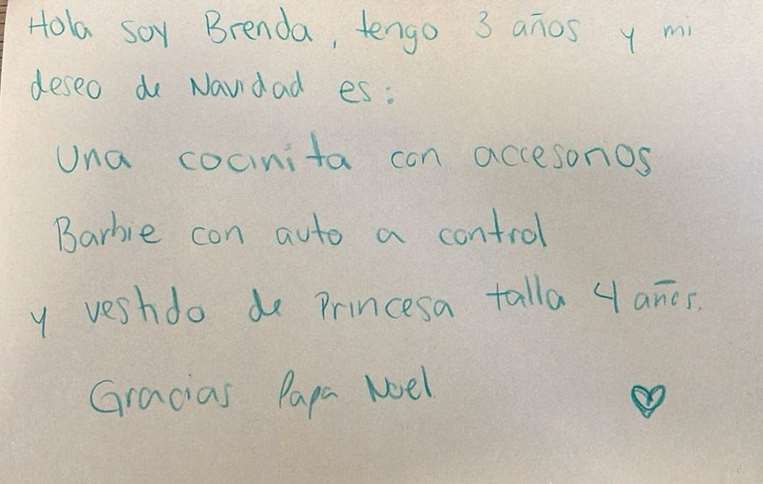 Hola soy Brenda, tengo 3 años y mi
deseo de Navidad es:
Una cocinita con accesorios
Barbie con auto a control
y vestido de Princesa talla 4 años.
Gracias Papa Noel